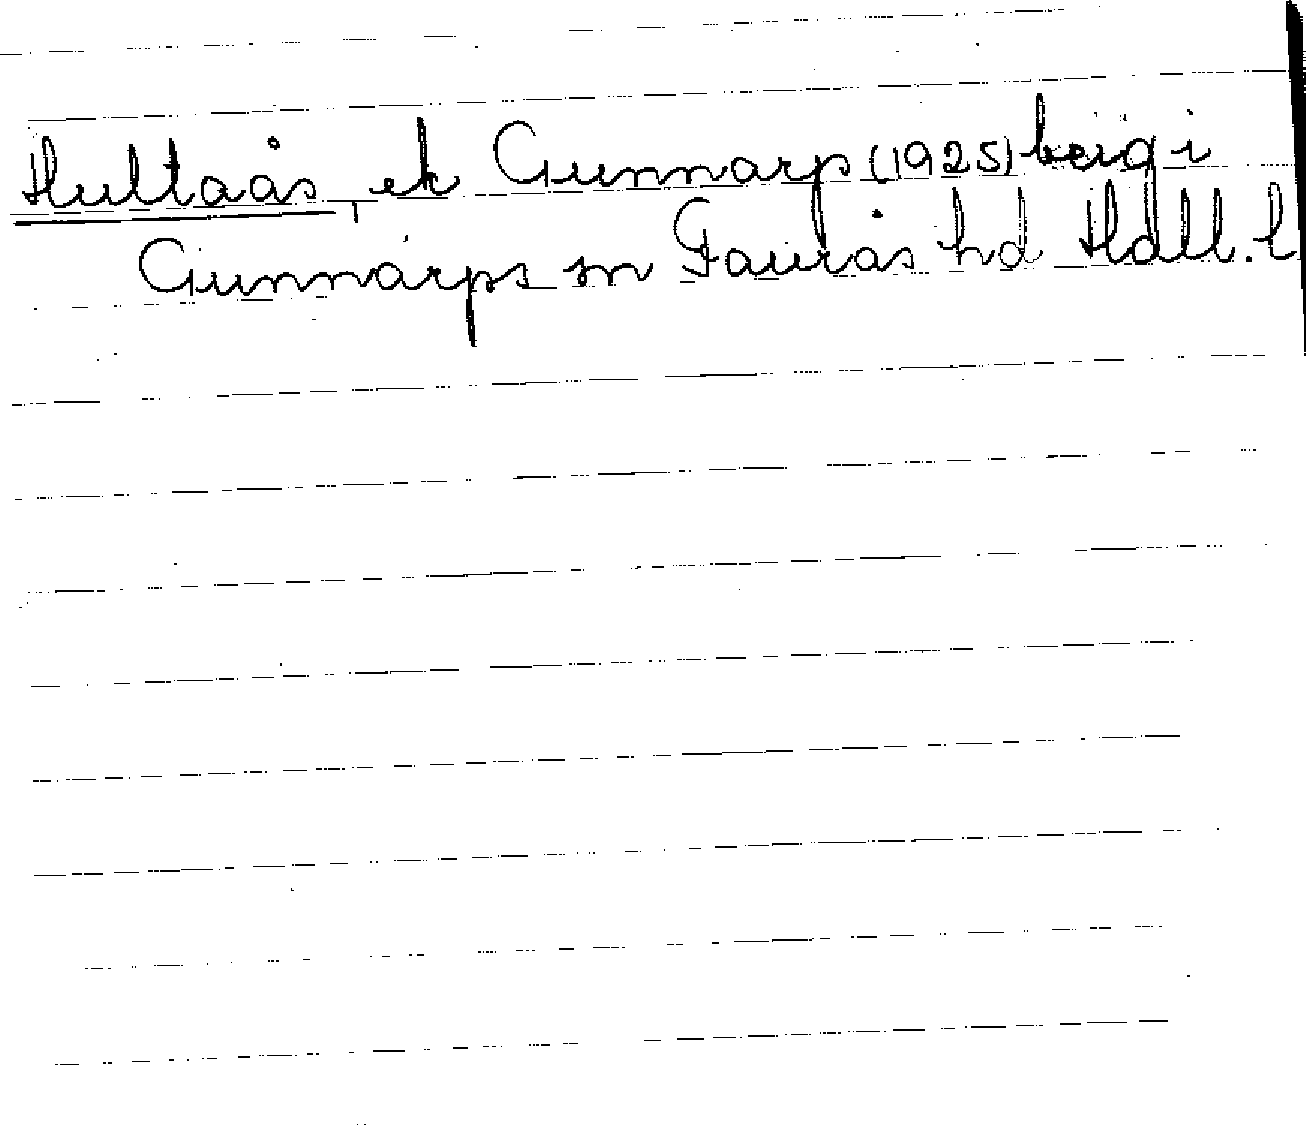 Hultaås, ek Gunnarp (1925) berg i
Gunnarps sn Faurås hd Hall. l